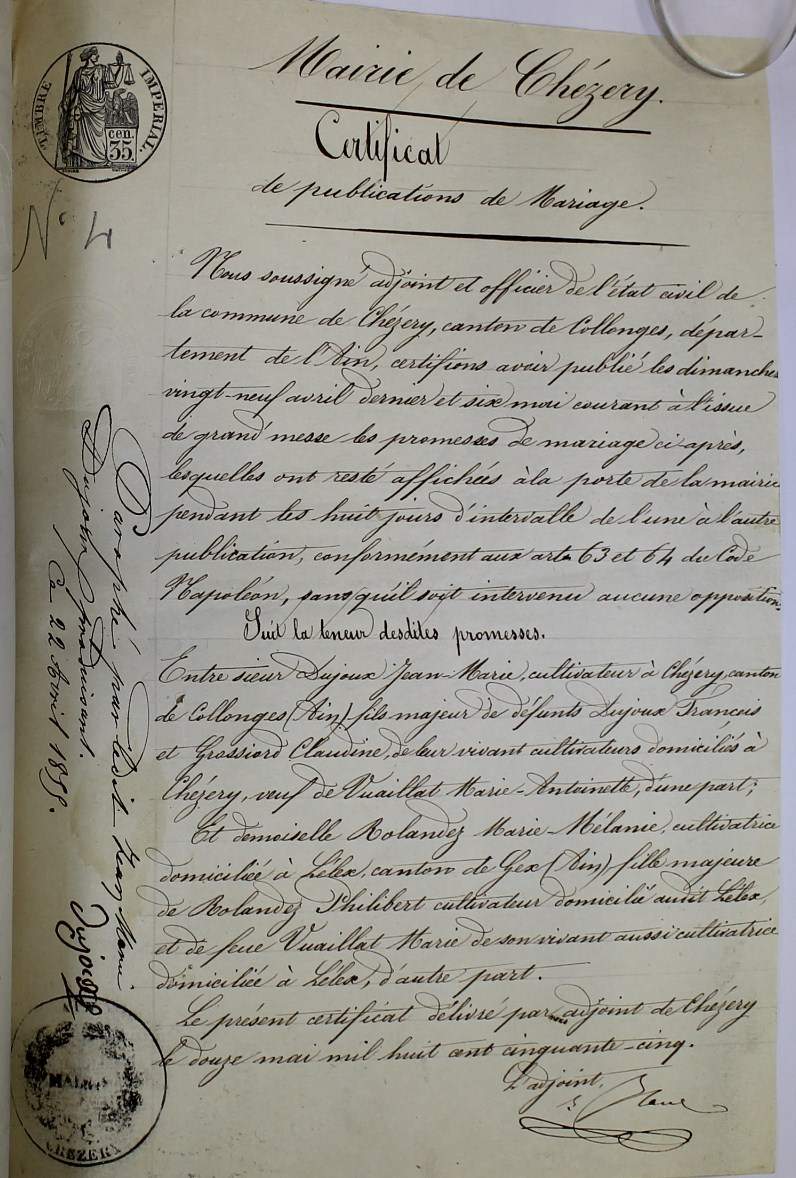 Mairie de Chézery.
Certificat
de publications de Mariage.
TIMBRE IMPERIAL.
35 cen.
N° 4
Nous soussigné adjoint et officier de l'état civil de
la commune de Chézery, canton de Collonges, dépar-
tement de l'Ain, certifions avoir publié les dimanches
vingt-neuf avril dernier et six mai courant à l'issue
de grand'messe les promesses de mariage ci-après,
lesquelles ont resté affichées à la porte de la mairie
pendant les huit jours d'intervalle de l'une à l'autre
publication, conformément aux arts 63 et 64 du Code
Napoléon, sans qu'il soit intervenu aucune opposition.
Suit la teneur desdites promesses.
Entre sieur Dujoux Jean-Marie, cultivateur à Chézery, canton
de Collonges (Ain) fils majeur de défunts Dujoux François
et Grossiord Claudine, de leur vivant cultivateurs domiciliés à
Chézery, veuf de Vuaillat Marie-Antoinette, d'une part;
Et demoiselle Rolandez Marie-Mélanie, cultivatrice
domiciliée à Lélex, canton de Gex (Ain) fille majeure
de Rolandez Philibert cultivateur domicilié audit Lélex,
et de feue Vuaillat Marie de son vivant aussi cultivatrice
domiciliée à Lélex, d'autre part.
Le présent certificat délivré par nous adjoint de Chézery
le douze mai mil huit cent cinquante-cinq.
L'adjoint,
Paraphé par ledit Jean Marie
Dujoux produisant.
Ce 22 Avril 1855.
MAIRIE
CHEZERY